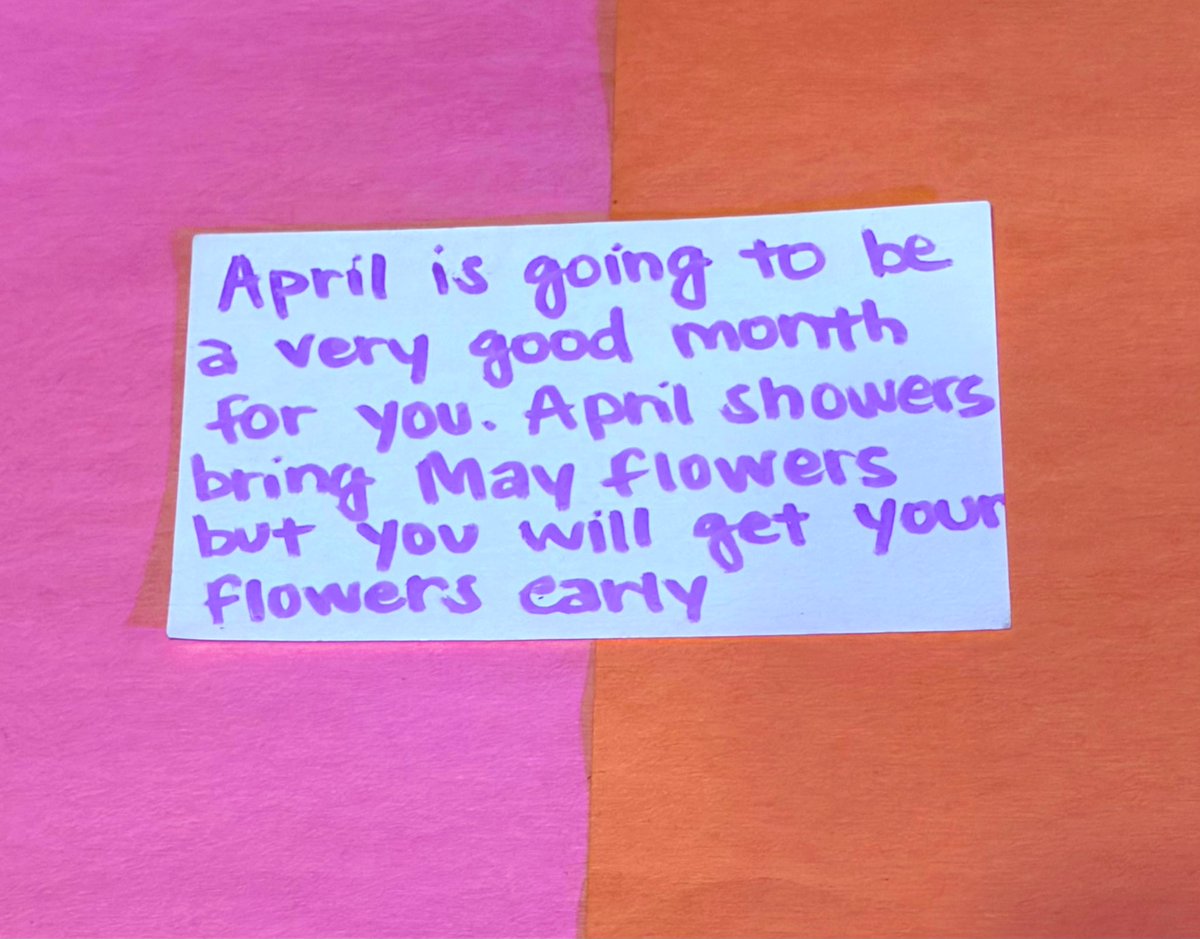 April is going to be
a very good month
for you. April showers
bring May flowers
but you will get your
flowers early